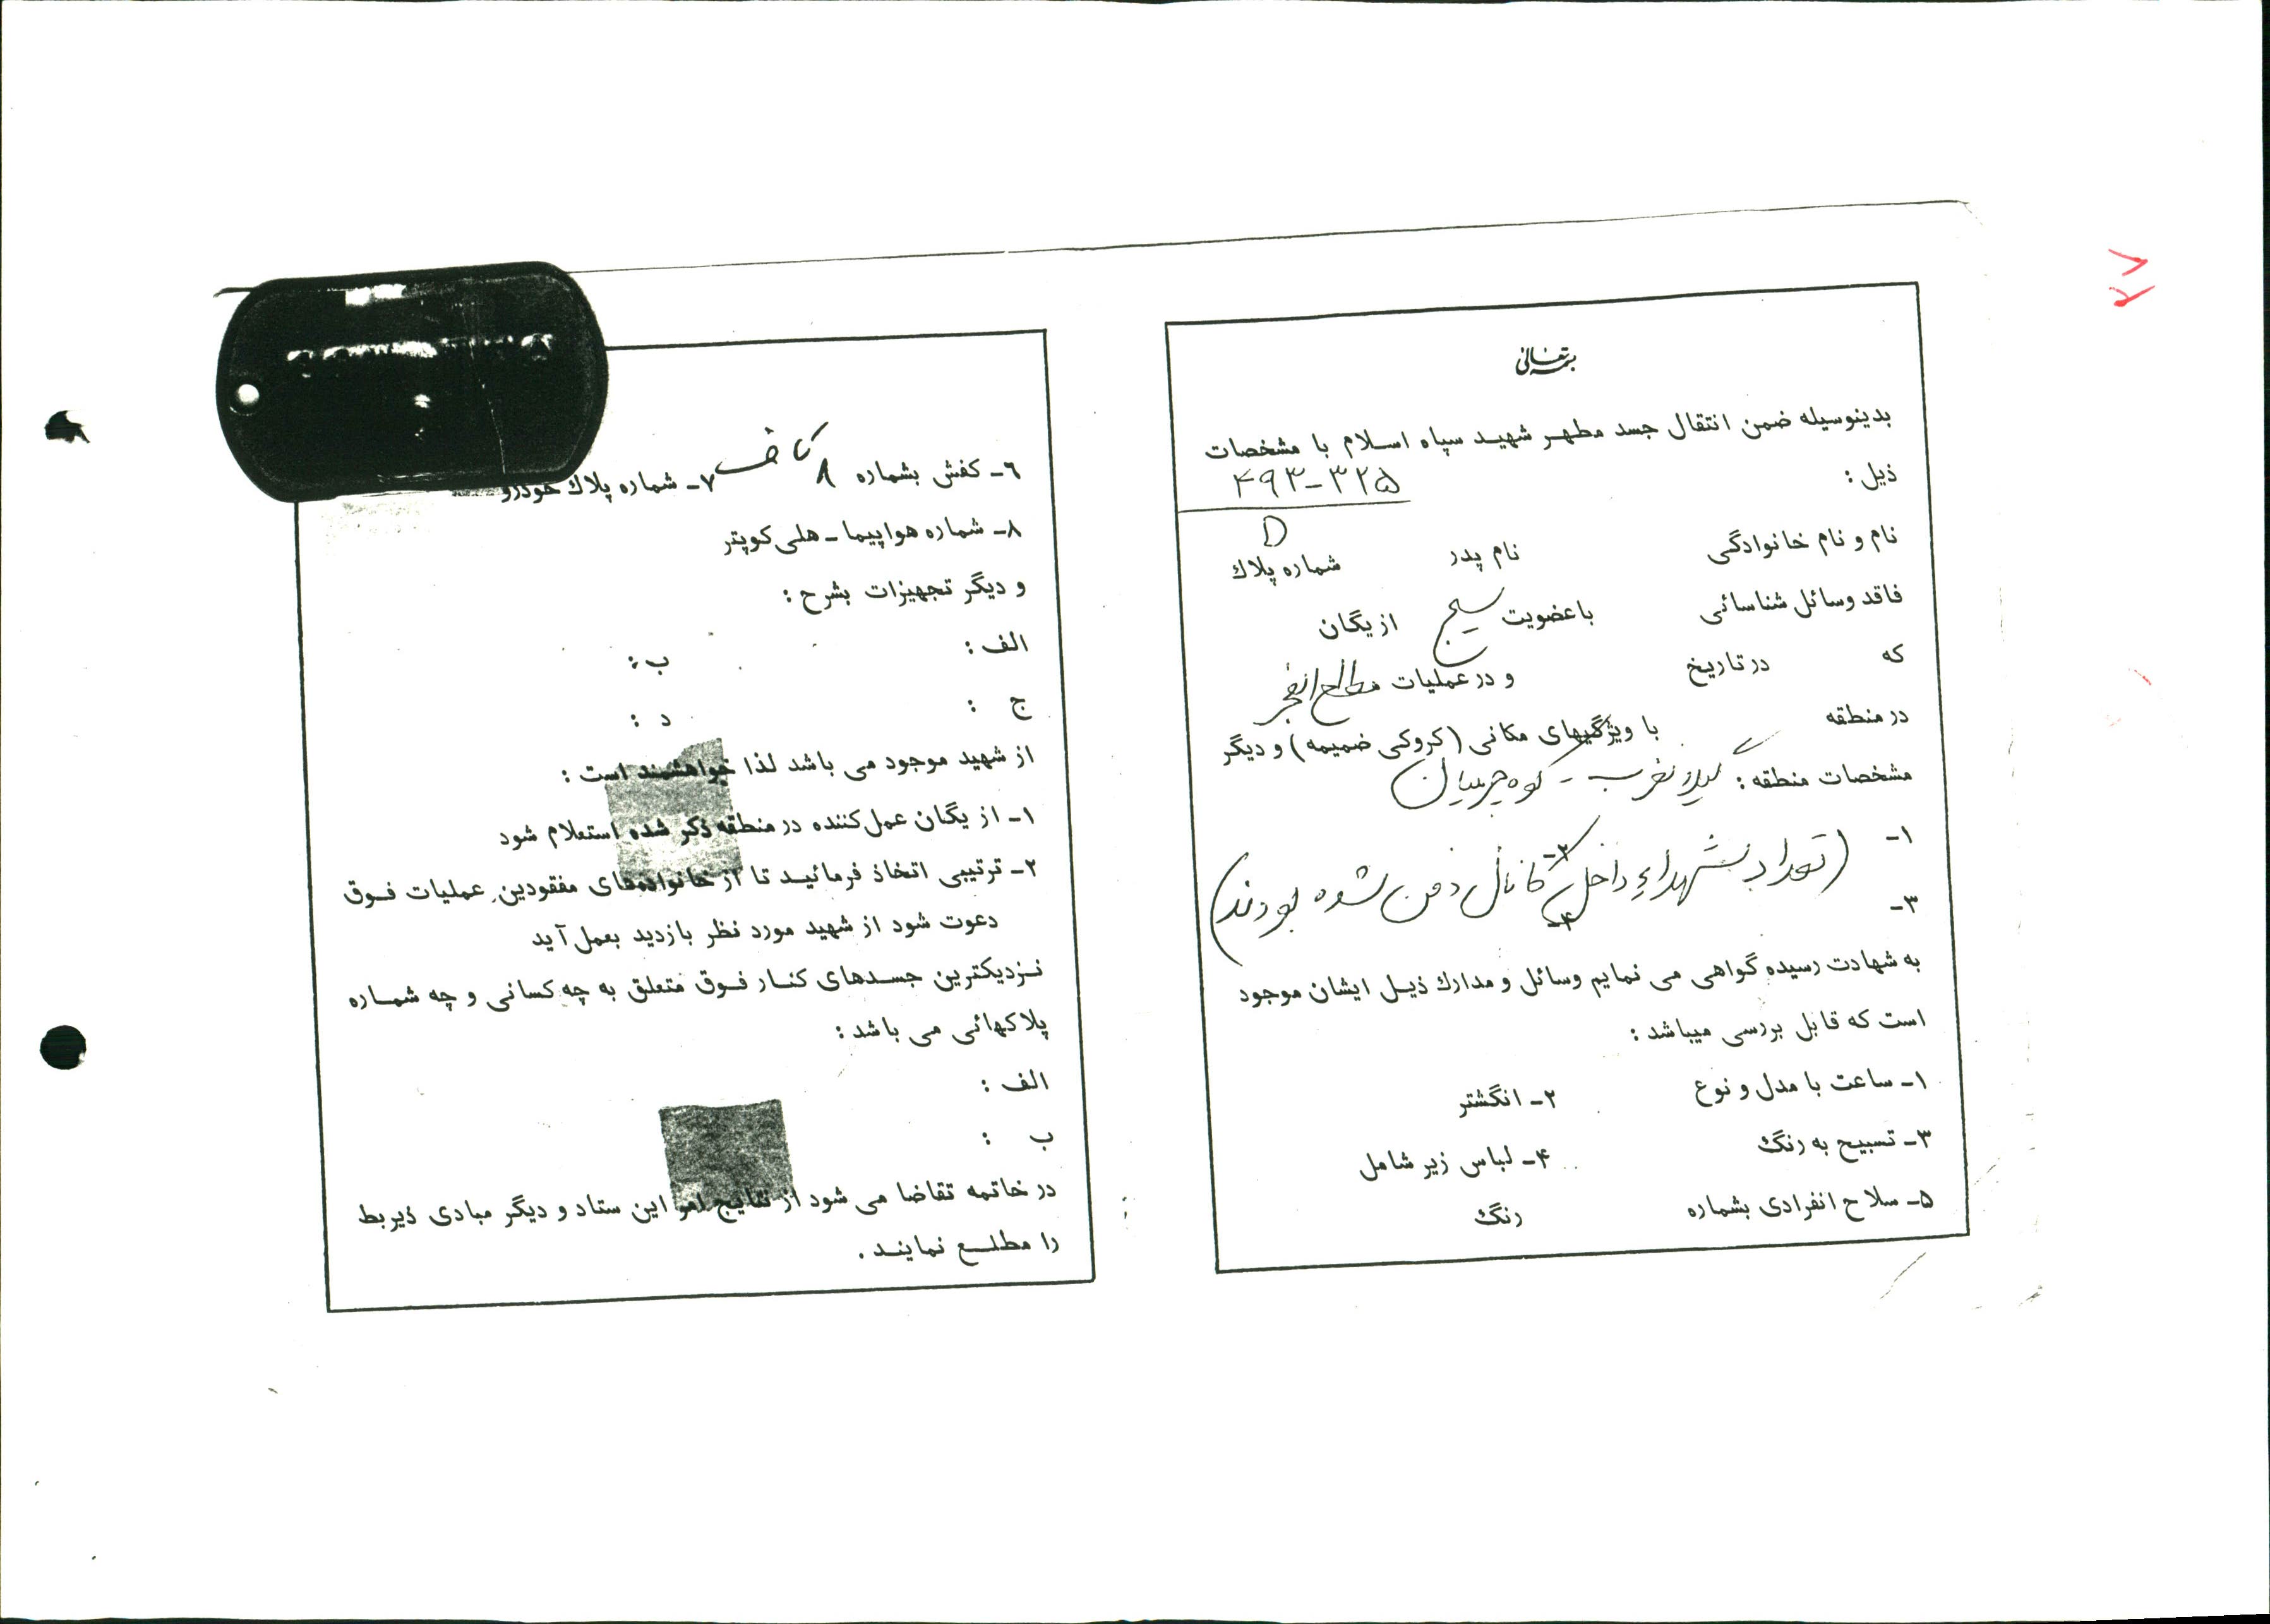 بسمه تعالی
بدینوسیله ضمن انتقال جسد مطهر شهید سپاه اسلام با مشخصات
ذیل : ۴۹۳-۳۲۵
D
نام و نام خانوادگی نام پدر شماره پلاك
فاقد وسائل شناسائی با عضویت بسیج از یگان
که در تاریخ و در عملیات مطلع الفجر
در منطقه با ویژگیهای مکانی (کروکی ضمیمه) و دیگر
مشخصات منطقه : گیلانغرب - کوه چرمیان
۱- ۲-
(تعداد شهداء داخل کانال دفن شده بودند)
۳- ۴-
به شهادت رسیده گواهی می نمایم وسائل و مدارك ذیل ایشان موجود
است که قابل بررسی میباشد :
۱- ساعت با مدل و نوع ۲- انگشتر
۳- تسبیح به رنگ ۴- لباس زیر شامل
۵- سلاح انفرادی بشماره رنگ
۶- کفش بشماره ۸ ۷- شماره پلاك خودرو
۸- شماره هواپیما - هلی کوپتر
و دیگر تجهیزات بشرح :
الف : ب :
ج : د :
از شهید موجود می باشد لذا خواهشمند است :
۱- از یگان عمل کننده در منطقه ذکر شده استعلام شود
۲- ترتیبی اتخاذ فرمائید تا از خانواده‌های مفقودین عملیات فوق
دعوت شود از شهید مورد نظر بازدید بعمل آید
نزدیکترین جسدهای کنار فوق متعلق به چه کسانی و چه شماره
پلاکهائی می باشد :
الف :
ب :
در خاتمه تقاضا می شود از نتایج امر این ستاد و دیگر مبادی ذیربط
را مطلع نمایند .